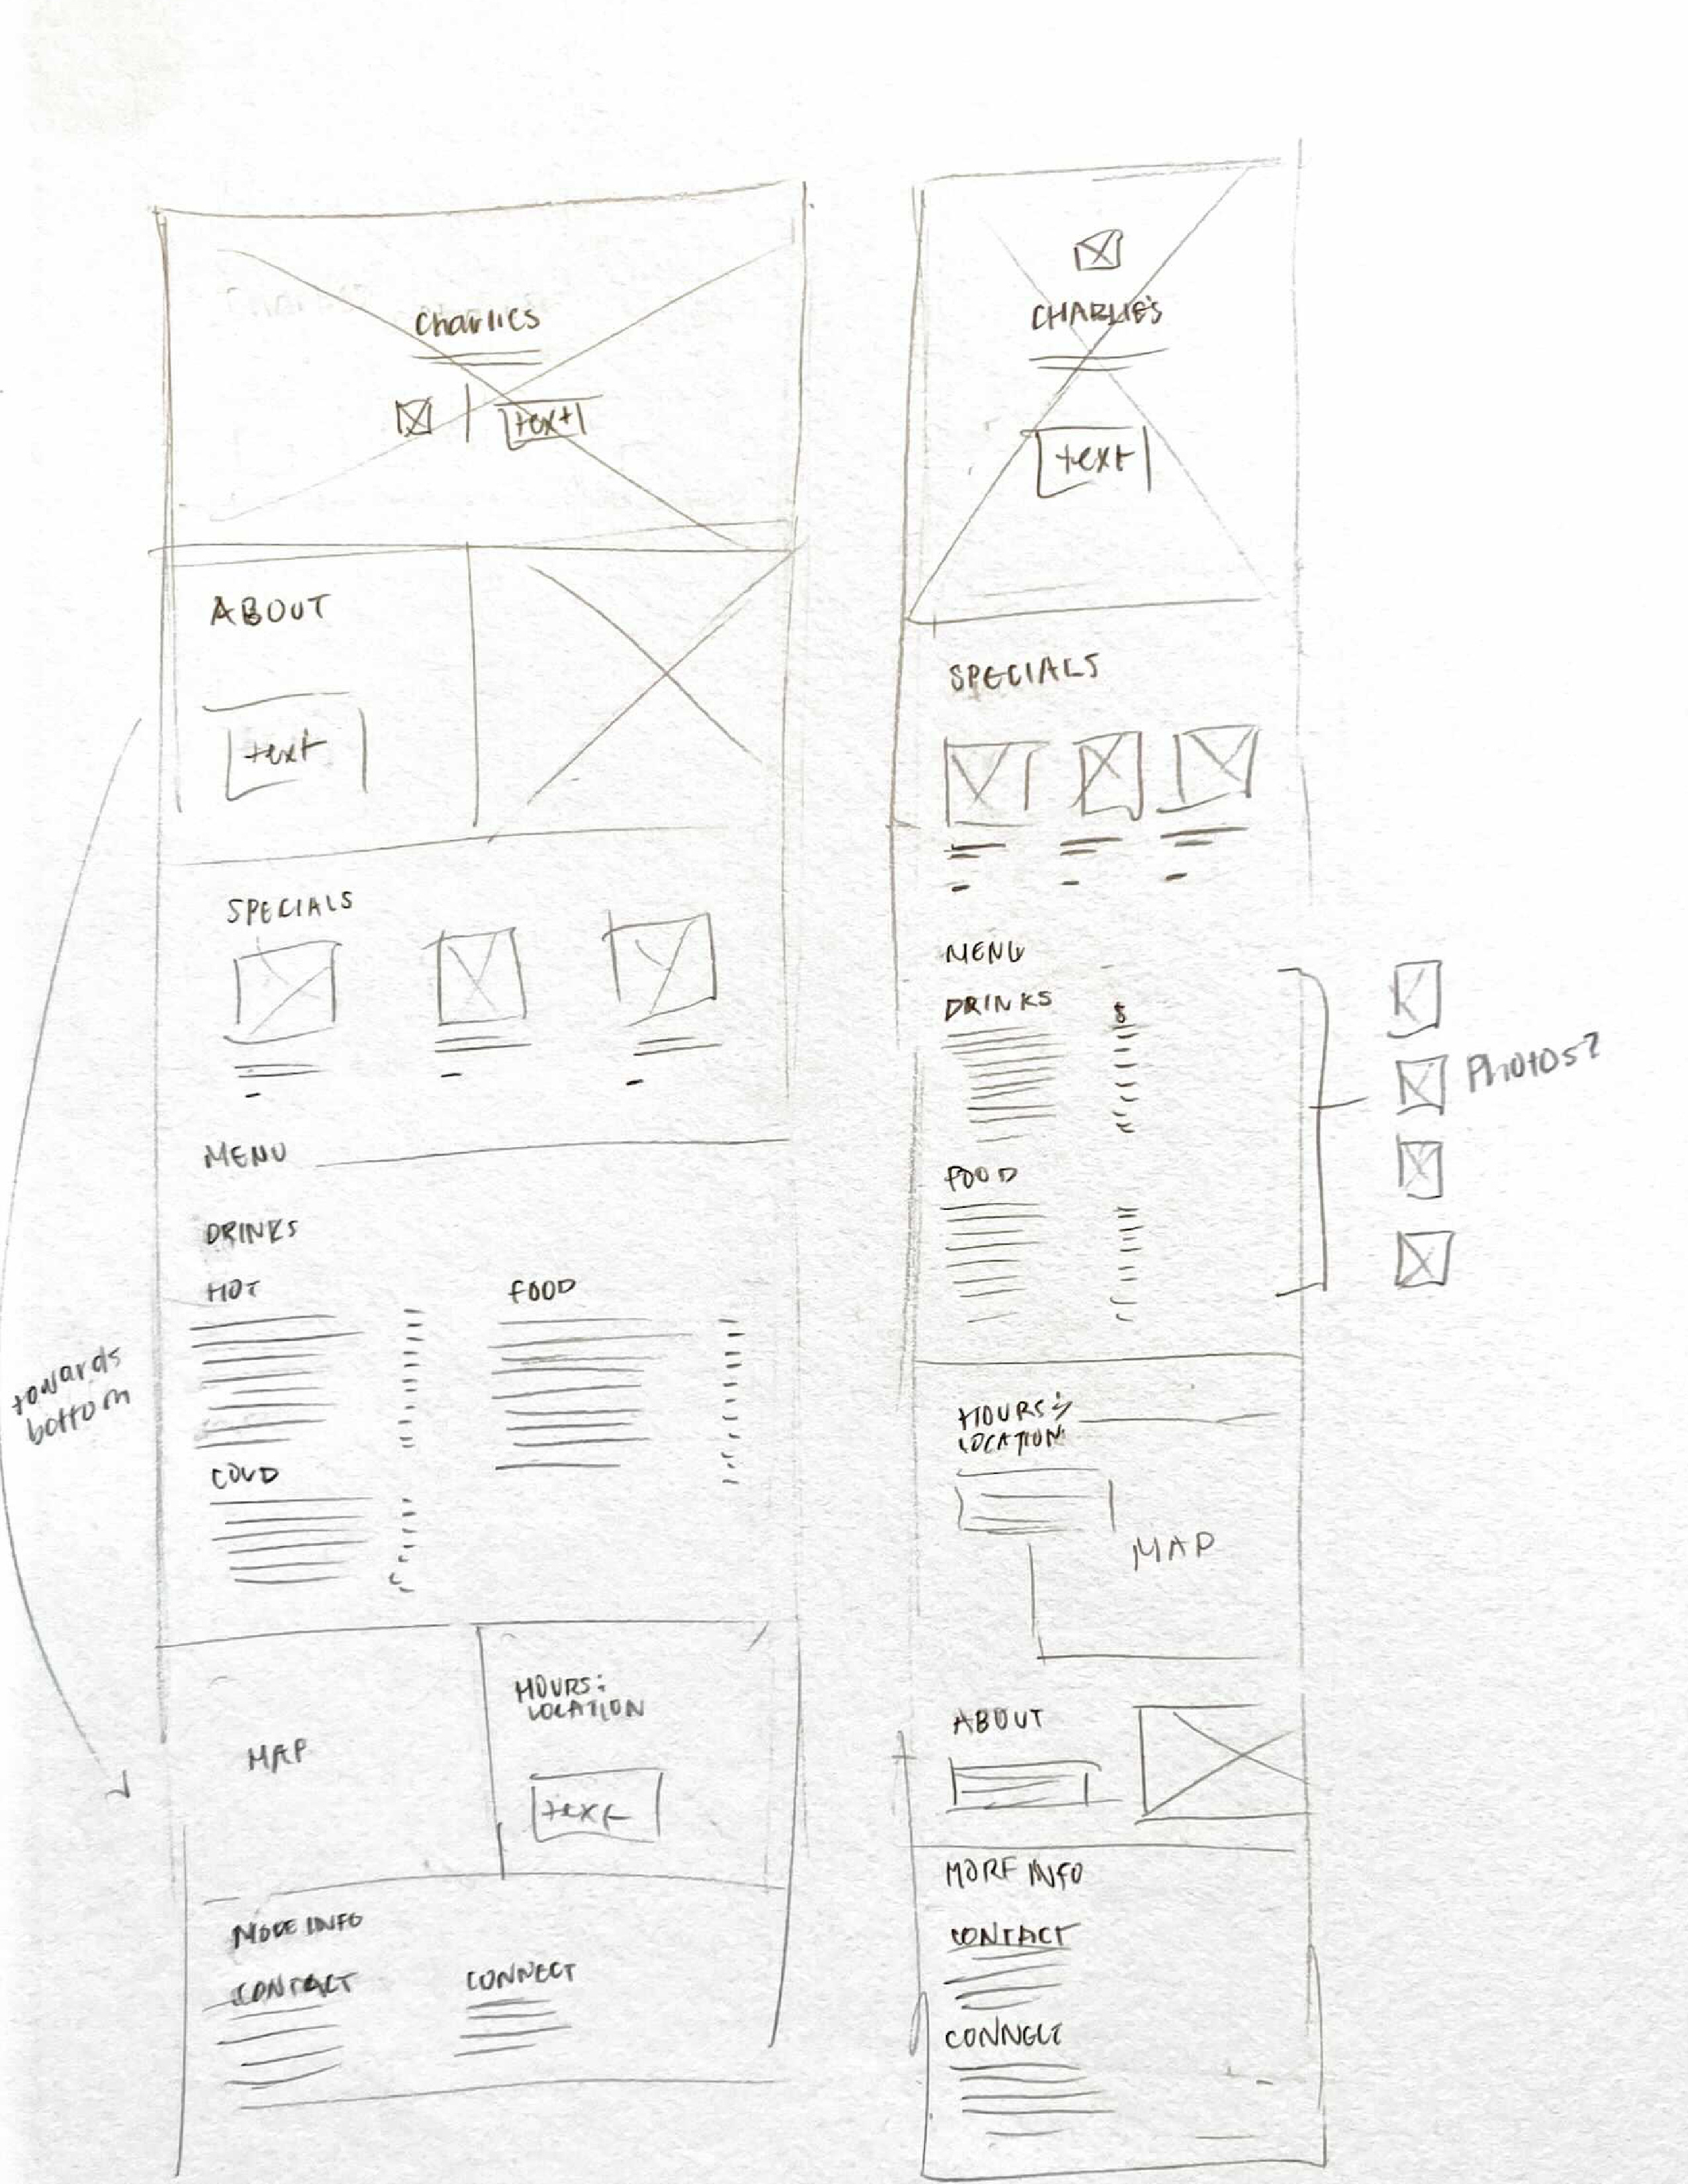 Charlies
text
ABOUT
text
SPECIALS
MENU
DRINKS
HOT
FOOD
COLD
towards
bottom
MAP
HOURS:
LOCATION
text
MORE INFO
CONTACT
CONNECT
CHARLIE'S
text
SPECIALS
MENU
DRINKS
$
FOOD
Photos?
HOURS &
LOCATION
MAP
ABOUT
MORE INFO
CONTACT
CONNECT